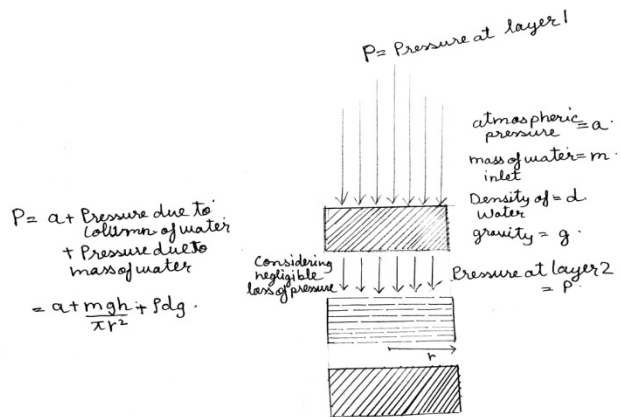 P= Pressure at layer 1
atmospheric
pressure = a.
mass of water = m.
inlet
Density of = d.
Water
gravity = g.
P= a + Pressure due to
column of water
+ Pressure due to
mass of water
= a + mgh/πr² + ρdg.
Considering
negligible
loss of pressure
Pressure at layer 2
= P
r